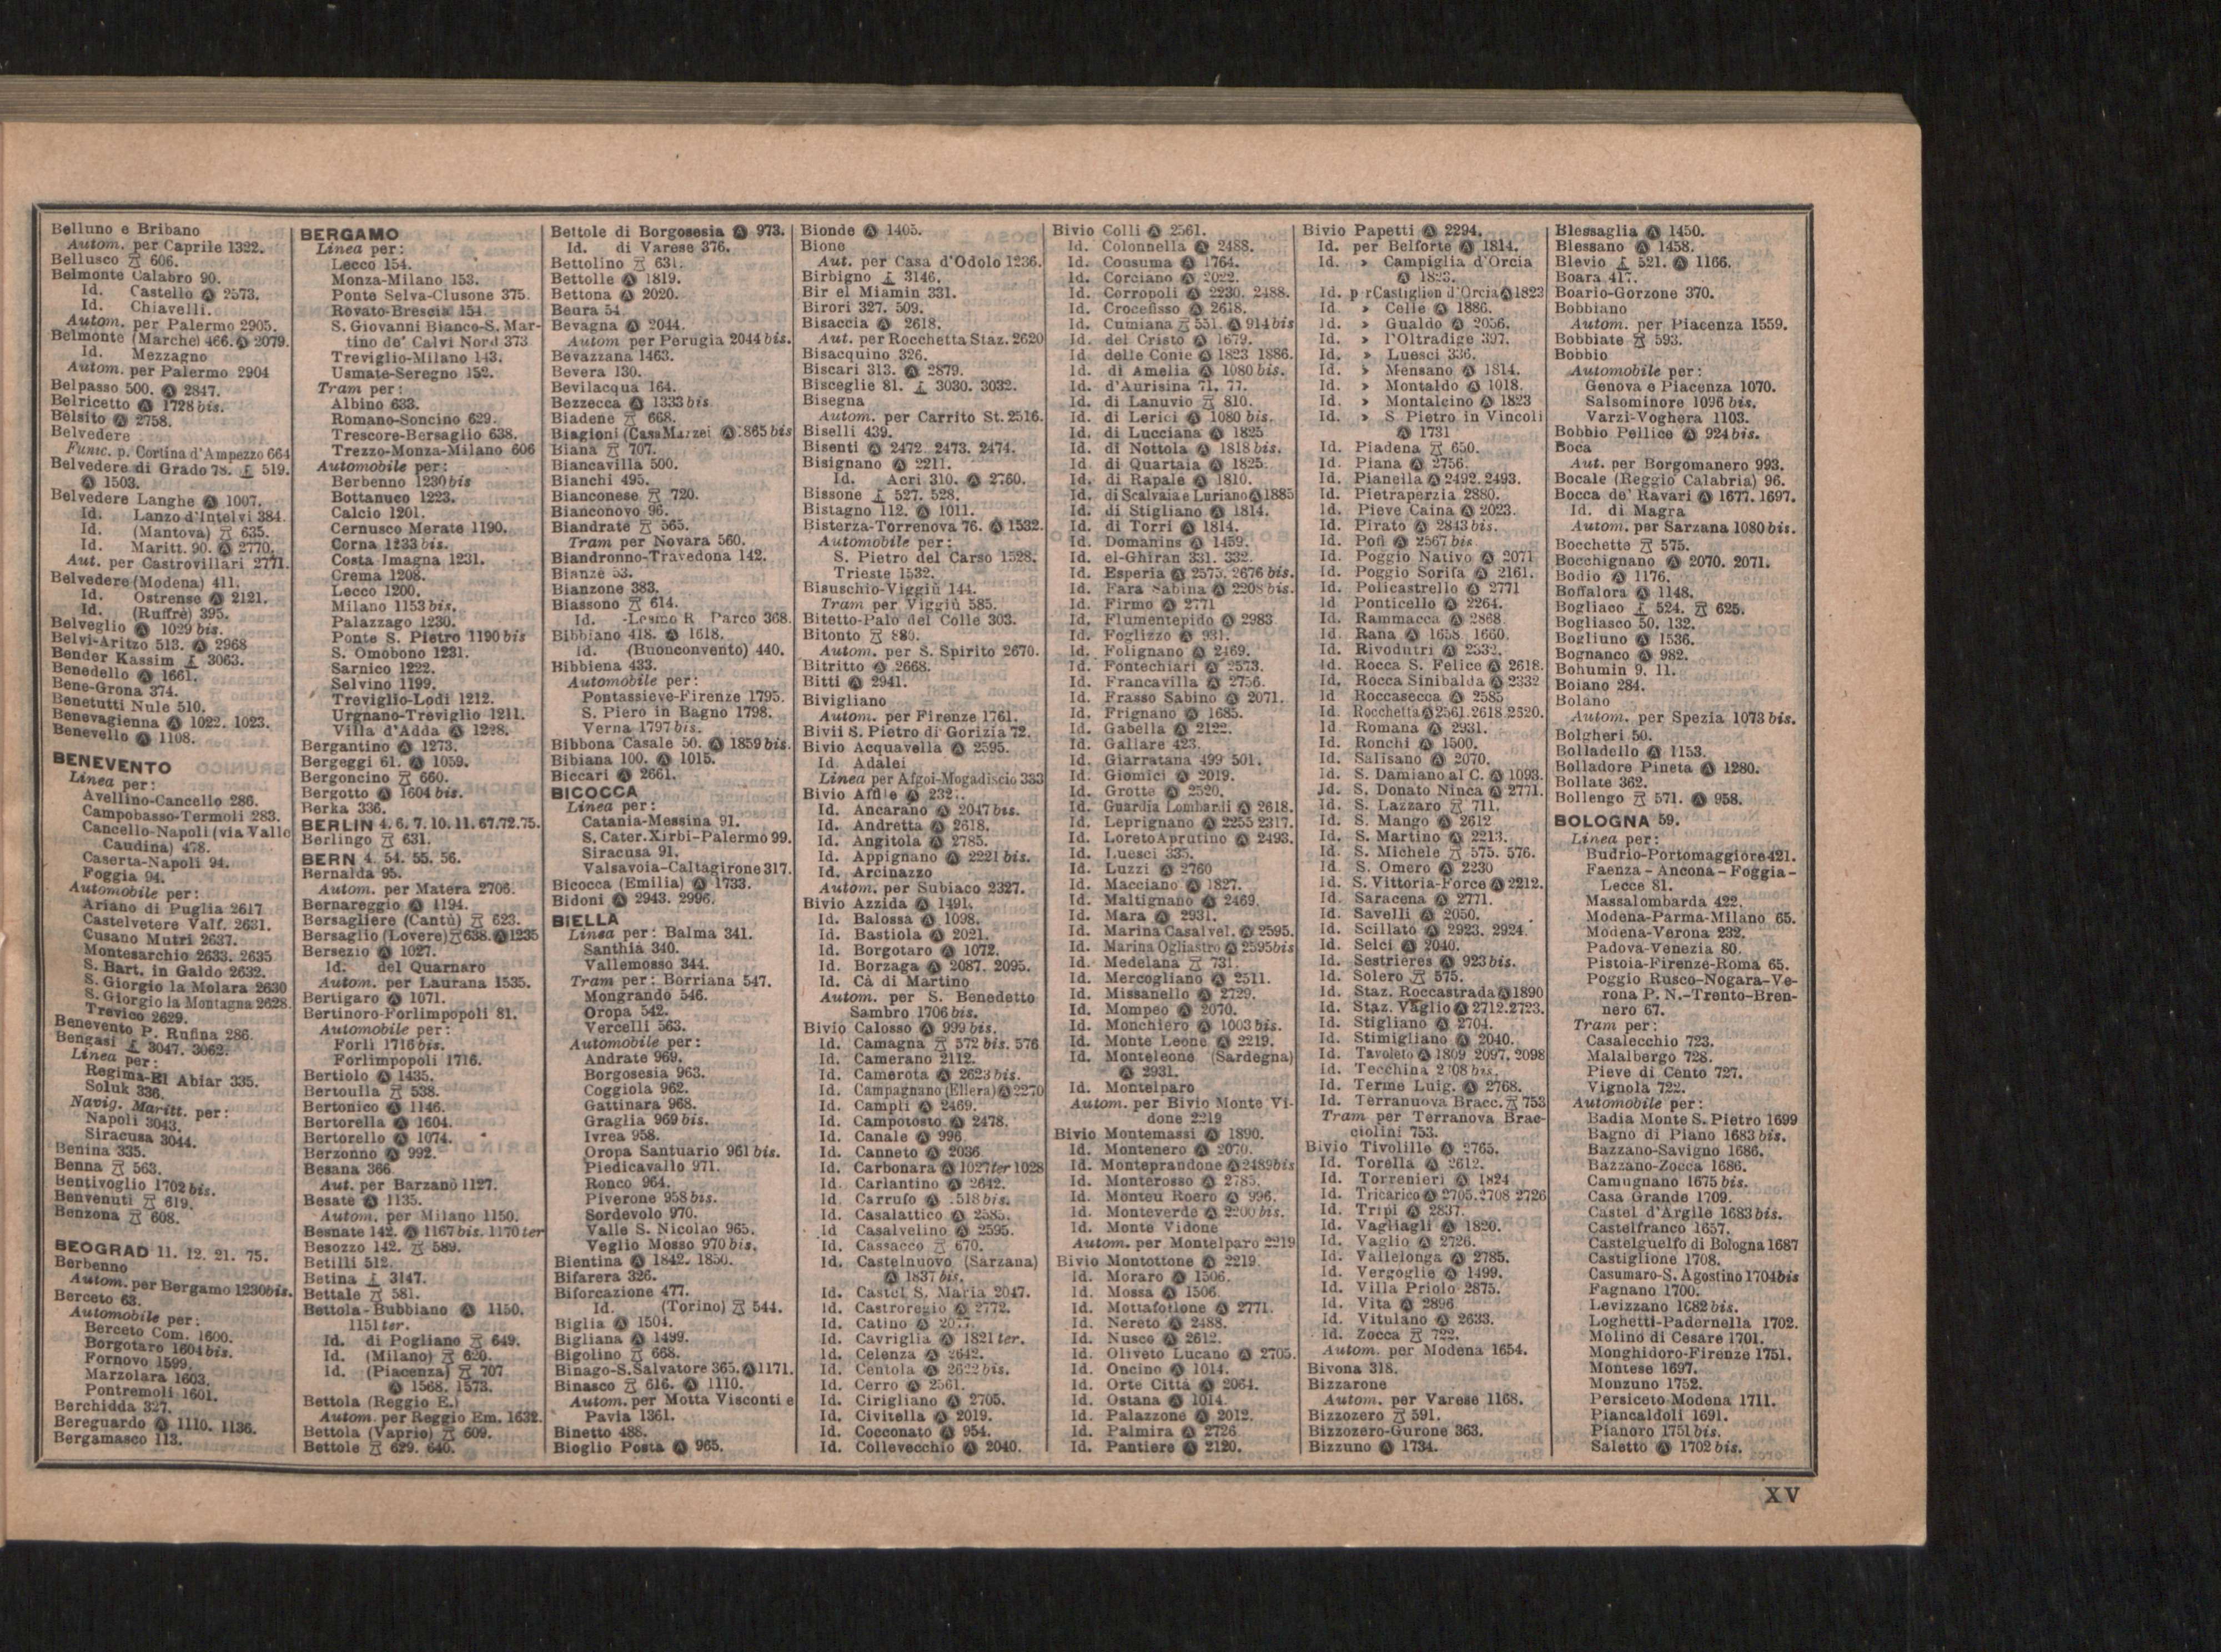 Belluno e Bribano
Autom. per Caprile 1322.
Bellusco 606.
Belmonte Calabro 90.
Id. Castello Ⓐ 2573.
Id. Chiavelli.
Autom. per Palermo 2905.
Belmonte (Marche) 466. Ⓐ 2079.
Id. Mezzagno
Autom. per Palermo 2904
Belpasso 500. Ⓐ 2847.
Belricetto Ⓐ 1728 bis.
Belsito Ⓐ 2758.
Belvedere
Funic. p. Cortina d'Ampezzo 664
Belvedere di Grado 78. 519.
Ⓐ 1503.
Belvedere Langhe Ⓐ 1007.
Id. Lanzo d'Intelvi 384.
Id. (Mantova) 635.
Id. Maritt. 90. Ⓐ 2770.
Aut. per Castrovillari 2771.
Belvedere (Modena) 411.
Id. Ostrense Ⓐ 2121.
Id. (Ruffrè) 395.
Belveglio Ⓐ 1029 bis.
Belvi-Aritzo 513. Ⓐ 2968
Bender Kassim 3063.
Benedello Ⓐ 1661.
Bene-Grona 374.
Benetutti Nule 510.
Benevagienna Ⓐ 1022. 1023.
Benevello Ⓐ 1108.
BENEVENTO
Linea per:
Avellino-Cancello 286.
Campobasso-Termoli 283.
Cancello-Napoli (via Valle
Caudina) 478.
Caserta-Napoli 94.
Foggia 94.
Automobile per:
Ariano di Puglia 2617
Castelvetere Valf. 2631.
Cusano Mutri 2637.
Montesarchio 2633. 2635
S. Bart. in Galdo 2632.
S. Giorgio la Molara 2630
S. Giorgio la Montagna 2628.
Trevico 2629.
Benevento P. Rufina 286.
Bengasi 3047. 3062.
Linea per:
Regima-El Abiar 335.
Soluk 336.
Navig. Maritt. per:
Napoli 3043.
Siracusa 3044.
Benina 335.
Benna 563.
Bentivoglio 1702 bis.
Benvenuti 619.
Benzona 608.
BEOGRAD 11. 12. 21. 75.
Berbenno
Autom. per Bergamo 1230bis.
Berceto 63.
Automobile per:
Berceto Com. 1600.
Borgotaro 1604 bis.
Fornovo 1599.
Marzolara 1603.
Pontremoli 1601.
Berchidda 327.
Bereguardo Ⓐ 1110. 1136.
Bergamasco 113.
BERGAMO
Linea per:
Lecco 154.
Monza-Milano 153.
Ponte Selva-Clusone 375.
Rovato-Brescia 154.
S. Giovanni Bianco-S. Mar-
tino de' Calvi Nord 373
Treviglio-Milano 143.
Usmate-Seregno 152.
Tram per:
Albino 633.
Romano-Soncino 629.
Trescore-Bersaglio 638.
Trezzo-Monza-Milano 606
Automobile per:
Berbenno 1230 bis
Bottanuco 1223.
Calcio 1201.
Cernusco Merate 1190.
Corna 1233 bis.
Costa Imagna 1231.
Crema 1208.
Lecco 1200.
Milano 1153 bis.
Palazzago 1230.
Ponte S. Pietro 1190 bis
S. Omobono 1231.
Sarnico 1222.
Selvino 1199.
Treviglio-Lodi 1212.
Urgnano-Treviglio 1211.
Villa d'Adda Ⓐ 1228.
Bergantino Ⓐ 1273.
Bergeggi 61. Ⓐ 1059.
Bergoncino 660.
Bergotto Ⓐ 1604 bis.
Berka 336.
BERLIN 4. 6. 7. 10. 11. 67.72.75.
Berlingo 631.
BERN 4. 54. 55. 56.
Bernalda 95.
Autom. per Matera 2706.
Bernareggio Ⓐ 1194.
Bersagliere (Cantù) 623.
Bersaglio (Lovere) 638. Ⓐ 1235
Bersezio Ⓐ 1027.
Id. del Quarnaro
Autom. per Laurana 1535.
Bertigaro Ⓐ 1071.
Bertinoro-Forlimpopoli 81.
Automobile per:
Forlì 1716 bis.
Forlimpopoli 1716.
Bertiolo Ⓐ 1435.
Bertoulla 538.
Bertonico Ⓐ 1146.
Bertorella Ⓐ 1604.
Bertorello Ⓐ 1074.
Berzonno Ⓐ 992.
Besana 366
Aut. per Barzanò 1127.
Besate Ⓐ 1135.
Autom. per Milano 1150.
Besnate 142. Ⓐ 1167 bis. 1170 ter
Besozzo 142. 589.
Betilli 512.
Betina 3147.
Bettale 581.
Bettola-Bubbiano Ⓐ 1150.
1151 ter.
Id. di Pogliano 649.
Id. (Milano) 620.
Id. (Piacenza) 707
Ⓐ 1568. 1573.
Bettola (Reggio E.)
Autom. per Reggio Em. 1632.
Bettola (Vaprio) 609.
Bettole 629. 640.
Bettole di Borgosesia Ⓐ 973.
Id. di Varese 376.
Bettolino 631.
Bettolle Ⓐ 1819.
Bettona Ⓐ 2020.
Beura 54
Bevagna Ⓐ 2044.
Autom per Perugia 2044 bis.
Bevazzana 1463.
Bevera 130.
Bevilacqua 164.
Bezzecca Ⓐ 1333 bis
Biadene 668.
Biagioni (Casa Marzei Ⓐ 865 bis
Biana 707.
Biancavilla 500.
Bianchi 495.
Bianconese 720.
Bianconovo 96.
Biandrate 565.
Tram per Novara 560.
Biandronno-Travedona 142.
Bianzè 53.
Bianzone 383.
Biassono 614.
Id. -Lesmo R Parco 368.
Bibbiano 418. Ⓐ 1618.
Id. (Buonconvento) 440.
Bibbiena 433.
Automobile per:
Pontassieve-Firenze 1795.
S. Piero in Bagno 1798.
Verna 1797 bis.
Bibbona Casale 50. Ⓐ 1859 bis.
Bibiana 100. Ⓐ 1015.
Biccari Ⓐ 2661.
BICOCCA
Linea per:
Catania-Messina 91.
S. Cater. Xirbi-Palermo 99.
Siracusa 91.
Valsavoia-Caltagirone 317.
Bicocca (Emilia) Ⓐ 1733.
Bidonì Ⓐ 2943. 2996.
BIELLA
Linea per: Balma 341.
Santhià 340.
Vallemosso 344.
Tram per: Borriana 547.
Mongrando 546.
Oropa 542.
Vercelli 563.
Automobile per:
Andrate 969.
Borgosesia 963.
Coggiola 962.
Gattinara 968.
Graglia 969 bis.
Ivrea 958.
Oropa Santuario 961 bis.
Piedicavallo 971.
Ronco 964.
Piverone 958 bis.
Sordevolo 970.
Valle S. Nicolao 965.
Veglio Mosso 970 bis.
Bientina Ⓐ 1842. 1850.
Bifarera 326.
Biforcazione 477.
Id. (Torino) 544.
Biglia Ⓐ 1504.
Bigliana Ⓐ 1499.
Bigolino 668.
Binago-S. Salvatore 365. Ⓐ 1171.
Binasco 616. Ⓐ 1110.
Autom. per Motta Visconti e
Pavia 1361.
Binetto 488.
Bioglio Posta Ⓐ 965.
Bionde Ⓐ 1405.
Bione
Aut. per Casa d'Odolo 1236.
Birbigno 3146.
Bir el Miamin 331.
Birori 327. 509.
Bisaccia Ⓐ 2618.
Aut. per Rocchetta Staz. 2620
Bisacquino 326.
Biscari 313. Ⓐ 2879.
Bisceglie 81. 3030. 3032.
Bisegna
Autom. per Carrito St. 2516.
Biselli 439.
Bisenti Ⓐ 2472. 2473. 2474.
Bisignano Ⓐ 2211.
Id. Acri 310. Ⓐ 2760.
Bissone 527. 528.
Bistagno 112. Ⓐ 1011.
Bisterza-Torrenova 76. Ⓐ 1532.
Automobile per:
S. Pietro del Carso 1528.
Trieste 1532.
Bisuschio-Viggiù 144.
Tram per Viggiù 585.
Bitetto-Palo del Colle 303.
Bitonto 880.
Autom. per S. Spirito 2670.
Bitritto Ⓐ 2668.
Bitti Ⓐ 2941.
Bivigliano
Autom. per Firenze 1761.
Bivii S. Pietro di Gorizia 72.
Bivio Acquavella Ⓐ 2595.
Id Adàlei
Linea per Afgoi-Mogadiscio 333
Bivio Affile Ⓐ
Id. Ancarano Ⓐ 2047 bis.
Id. Andretta Ⓐ 2618.
Id. Angitola Ⓐ 2785.
Id. Appignano Ⓐ 2221 bis.
Id. Arcinazzo
Autom. per Subiaco 2327.
Bivio Azzida Ⓐ 1491.
Id. Balossa Ⓐ 1098.
Id. Bastiola Ⓐ 2021.
Id. Borgotaro Ⓐ 1072.
Id. Borzaga Ⓐ 2087. 2095.
Id. Cà di Martino
Autom. per S. Benedetto
Sambro 1706 bis.
Bivio Calosso Ⓐ 999 bis.
Id. Camagna 572 bis. 576
Id. Camerano 2112.
Id. Camerota Ⓐ 2623 bis.
Id. Campagnano (Ellera) Ⓐ 2270
Id. Campli Ⓐ 2469.
Id. Campotosto Ⓐ 2478.
Id. Canale Ⓐ 996
Id. Canneto Ⓐ 2036
Id. Carbonara Ⓐ 1027 ter 1028
Id. Carlantino Ⓐ 2642.
Id. Carrufo Ⓐ 518 bis.
Id. Casalattico Ⓐ 2585.
Id Casalvelino Ⓐ 2595.
Id. Cassacco 670.
Id. Castelnuovo (Sarzana)
Ⓐ 1837 bis.
Id. Castel S. Maria 2047.
Id. Castroregio Ⓐ 2772.
Id. Catino Ⓐ
Id. Cavriglia Ⓐ 1821 ter.
Id. Celenza Ⓐ 2642.
Id. Centola Ⓐ 2622 bis.
Id. Cerro Ⓐ 2561.
Id. Cirigliano Ⓐ 2705.
Id. Civitella Ⓐ 2019.
Id. Cocconato Ⓐ 954.
Id. Collevecchio Ⓐ 2040.
Bivio Colli Ⓐ 2561.
Id. Colonnella Ⓐ 2488.
Id. Consuma Ⓐ 1764.
Id. Corciano Ⓐ 2022.
Id. Corropoli Ⓐ 2230. 2488.
Id. Crocefisso Ⓐ 2618.
Id. Cumiana 551. Ⓐ 914 bis
Id. del Cristo Ⓐ 1679.
Id delle Conie Ⓐ 1823 1886.
Id. di Amelia Ⓐ 1080 bis.
Id. d'Aurisina 71. 77.
Id. di Lanuvio 810.
Id. di Lerici Ⓐ 1080 bis.
Id. di Lucciana Ⓐ 1825
Id. di Nottola Ⓐ 1818 bis.
Id di Quartaia Ⓐ 1825.
Id. di Rapale Ⓐ 1810.
Id. di Scalvaia e Luriano Ⓐ 1885
Id. di Stigliano Ⓐ 1814.
Id. di Torri Ⓐ 1814.
Id. Domanins Ⓐ 1459.
Id. el-Ghiran 331. 332.
Id. Esperia Ⓐ 2575. 2676 bis.
Id. Fara Sabina Ⓐ 2208 bis.
Id. Firmo Ⓐ 2771
Id. Flumentepido Ⓐ 2983
Id. Foglizzo Ⓐ 931.
Id. Folignano Ⓐ 2469.
Id. Fontechiari Ⓐ 2573.
Id. Francavilla Ⓐ 2756.
Id. Frasso Sabino Ⓐ 2071.
Id. Frignano Ⓐ 1685.
Id. Gabella Ⓐ 2122.
Id. Gallare 423.
Id. Giarratana 499 501.
Id. Giomici Ⓐ 2019.
Id. Grotte Ⓐ 2520.
Id. Guardia Lombardi Ⓐ 2618.
Id. Leprignano Ⓐ 2255 2317.
Id. Loreto Aprutino Ⓐ 2493.
Id. Luesci 335.
Id. Luzzi Ⓐ 2760
Id. Macciano Ⓐ 1827.
Id. Maltignano Ⓐ 2469.
Id. Mara Ⓐ 2931.
Id. Marina Casalvel. Ⓐ 2595.
Id. Marina Ogliastro Ⓐ 2595bis
Id. Medelana 731.
Id. Mercogliano Ⓐ 2511.
Id. Missanello Ⓐ 2729.
Id. Mompeo Ⓐ 2070.
Id. Monchiero Ⓐ 1003 bis.
Id. Monte Leone Ⓐ 2219.
Id. Monteleone (Sardegna)
Ⓐ 2931.
Id. Montelparo
Autom. per Bivio Monte Vi-
done 2219
Bivio Montemassi Ⓐ 1890.
Id. Montenero Ⓐ 2070.
Id. Monteprandone Ⓐ 2489bis
Id. Monterosso Ⓐ 2785.
Id. Monteu Roero Ⓐ 996.
Id. Monteverde Ⓐ 2200 bis.
Id. Monte Vidone
Autom. per Montelparo 2219
Bivio Montottone Ⓐ 2219
Id. Moraro Ⓐ 1506.
Id. Mossa Ⓐ 1506
Id. Mottafollone Ⓐ 2771.
Id. Nereto Ⓐ 2488.
Id. Nusco Ⓐ 2612.
Id. Oliveto Lucano Ⓐ 2705.
Id. Oncino Ⓐ 1014.
Id. Orte Città Ⓐ 2064.
Id. Ostana Ⓐ 1014
Id. Palazzone Ⓐ 2012.
Id. Palmira Ⓐ 2726
Id. Pantiere Ⓐ 2120.
Bivio Papetti Ⓐ 2294.
Id. per Belforte Ⓐ 1814.
Id. » Campiglia d'Orcia
Ⓐ 1823.
Id. p r Castiglion d'Orcia Ⓐ 1823
Id. » Celle Ⓐ 1886.
Id. » Gualdo Ⓐ 2056.
Id. » l'Oltradige 397.
Id. » Luesci 336.
Id. » Mensano Ⓐ 1814.
Id. » Montaldo Ⓐ 1018.
Id. » Montalcino Ⓐ 1823
Id. » S Pietro in Vincoli
Ⓐ 1731
Id. Piadena 650.
Id. Piana Ⓐ 2756.
Id. Pianella Ⓐ 2492. 2493.
Id. Pietraperzia 2880.
Id. Pieve Caina Ⓐ 2023.
Id. Pirato Ⓐ 2843 bis.
Id. Pofi Ⓐ 2567 bis
Id. Poggio Nativo Ⓐ 2071
Id. Poggio Sorifa Ⓐ 2161.
Id. Policastrello Ⓐ 2771
Id Ponticello Ⓐ 2264.
Id. Rammacca Ⓐ 2868
Id. Rana Ⓐ 1658 1660.
Id. Rivodutri Ⓐ 2332.
Id. Rocca S. Felice Ⓐ 2618.
Id. Rocca Sinibalda Ⓐ 2332
Id Roccasecca Ⓐ 2585
Id. Rocchetta Ⓐ 2561.2618 2620.
Id Romana Ⓐ 2931.
Id. Ronchi Ⓐ 1500.
Id. Salisano Ⓐ 2070.
Id. S. Damiano al C. Ⓐ 1093.
Id. S. Donato Ninea Ⓐ 2771.
Id. S. Lazzaro 711.
Id. S. Mango Ⓐ 2612
Id. S. Martino Ⓐ 2213.
Id. S. Michele 575. 576.
Id S. Omero Ⓐ 2230
Id. S. Vittoria-Force Ⓐ 2212.
Id. Saracena Ⓐ 2771.
Id. Savelli Ⓐ 2050.
Id. Scillato Ⓐ 2923. 2924
Id. Selci Ⓐ 2040.
Id. Sestrieres Ⓐ 923 bis.
Id. Solero 575.
Id. Staz. Roccastrada Ⓐ 1890
Id. Staz. Vaglio Ⓐ 2712.2723.
Id. Stigliano Ⓐ 2704.
Id. Stimigliano Ⓐ 2040.
Id. Tavoleto Ⓐ 1809 2097. 2098
Id. Tecchina 2 08 bis.
Id. Terme Luig. Ⓐ 2768.
Id. Terranuova Bracc. 753
Tram per Terranova Brac-
ciolini 753.
Bivio Tivolille Ⓐ 2765.
Id. Torella Ⓐ 2612.
Id. Torrenieri Ⓐ 1824
Id. Tricarico Ⓐ 2705.2708 2726
Id. Tripi Ⓐ 2837.
Id. Vagliagli Ⓐ 1820.
Id. Vaglio Ⓐ 2726.
Id. Vallelonga Ⓐ 2785.
Id. Vergoglie Ⓐ 1499.
Id. Villa Priolo 2875.
Id. Vita Ⓐ 2896
Id. Vitulano Ⓐ 2633.
Id. Zocca 722.
Autom. per Modena 1654.
Bivona 318.
Bizzarone
Autom. per Varese 1168.
Bizzozero 591.
Bizzozero-Gurone 363.
Bizzuno Ⓐ 1734.
Blessaglia Ⓐ 1450.
Blessano Ⓐ 1458.
Blevio 521. Ⓐ 1166.
Boara 417.
Boario-Gorzone 370.
Bobbiano
Autom. per Piacenza 1559.
Bobbiate 593.
Bobbio
Automobile per:
Genova e Piacenza 1070.
Salsominore 1096 bis.
Varzi-Voghera 1103.
Bobbio Pellice Ⓐ 924 bis.
Boca
Aut. per Borgomanero 993.
Bocale (Reggio Calabria) 96.
Bocca de' Ravari Ⓐ 1677. 1697.
Id. di Magra
Autom. per Sarzana 1080 bis.
Bocchette 575.
Bocchignano Ⓐ 2070. 2071.
Bodio Ⓐ 1176.
Boffalora Ⓐ 1148.
Bogliaco 524. 625.
Bogliasco 50. 132.
Bogliuno Ⓐ 1536.
Bognanco Ⓐ 982.
Bohumin 9. 11.
Boiano 284.
Bolano
Autom. per Spezia 1073 bis.
Bolgheri 50.
Bolladello Ⓐ 1153.
Bolladore Pineta Ⓐ 1280.
Bollate 362.
Bollengo 571. Ⓐ 958.
BOLOGNA 59.
Linea per:
Budrio-Portomaggiore 421.
Faenza-Ancona-Foggia-
Lecce 81.
Massalombarda 422.
Modena-Parma-Milano 65.
Modena-Verona 232.
Padova-Venezia 80.
Pistoia-Firenze-Roma 65.
Poggio Rusco-Nogara-Ve-
rona P. N.-Trento-Bren-
nero 67.
Tram per:
Casalecchio 723.
Malalbergo 728.
Pieve di Cento 727.
Vignola 722.
Automobile per:
Badia Monte S. Pietro 1699
Bagno di Piano 1683 bis.
Bazzano-Savigno 1686.
Bazzano-Zocca 1686.
Camugnano 1675 bis.
Casa Grande 1709.
Castel d'Argile 1683 bis.
Castelfranco 1657.
Castelguelfo di Bologna 1687
Castiglione 1708.
Casumaro-S. Agostino 1704bis
Fagnano 1700.
Levizzano 1682 bis.
Loghetti-Padernella 1702.
Molino di Cesare 1701.
Monghidoro-Firenze 1751.
Montese 1697.
Monzuno 1752.
Persiceto Modena 1711.
Piancaldoli 1691.
Pianoro 1751 bis.
Saletto Ⓐ 1702 bis.
XV